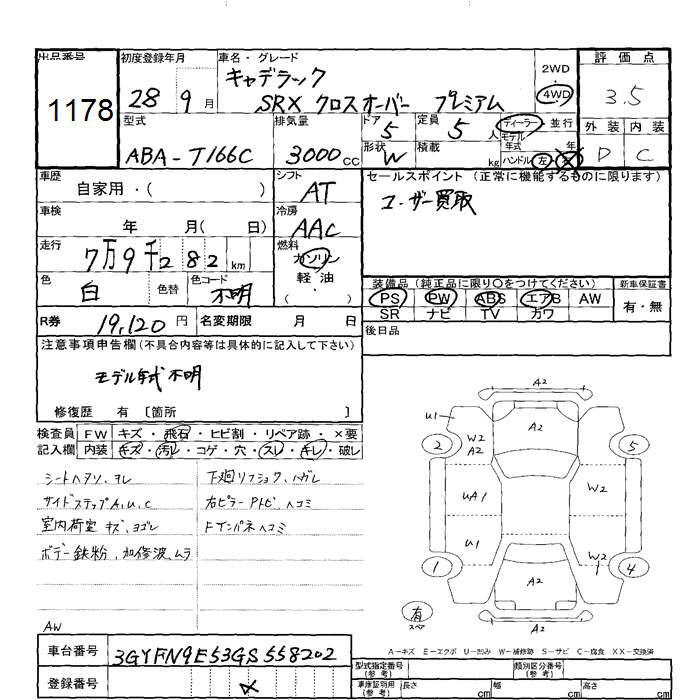 出品番号
1178
初度登録年月
28 9 月
車名・グレード
キャデラック
SRX クロスオーバー プレミアム
2WD
4WD
評価点
3.5
外装 内装
D C
型式
ABA-T166C
排気量
3000 CC
ドア
5
定員
5 人
形状
W
積載
kg
ディーラー・並行
モデル年式 年
ハンドル 左 右
車歴
自家用・( )
シフト
AT
セールスポイント (正常に機能するものに限ります)
ユーザー買取
車検
年 月( 日)
冷房
AAC
走行
7万9千282 km
燃料
ガソリン
軽油
( ・ )
色
白
色替
色コード
不明
装備品 (純正品に限り○をつけてください)
新車保証書
PS PW ABS エアB AW
SR ナビ TV カワ
有・無
R券
19,120 円
名変期限 月 日
後日品
注意事項申告欄 (不具合内容等は具体的に記入して下さい)
モデル年式不明
修復歴 有 〔箇所 〕
検査員記入欄
FW キズ・飛石・ヒビ割・リペア跡・×要
内装 キズ・汚レ・コゲ・穴・スレ・キレ・破レ
シートヘタリ、ヨレ
サイドステップA,U,C
室内荷室 キズ、ヨゴレ
ボデー鉄粉、加修波、ムラ
AW
下廻リフショク、ハゲレ
右ピラーアトビ、ヘコミ
Fインパネヘコミ
A2
U1
2
W2
A2
A2
5
UA1
W2
U1
W2
1
1
4
A2
A2
有
スペア
A-キズ E-エクボ U-凹み W-補修跡 S-サビ C-腐食 XX-交換済
車台番号
3GYFN9E53GS558202
登録番号
型式指定番号
(参考)
類別区分番号
(参考)
車庫証明用
(参考)
長さ cm
幅 cm
高さ cm